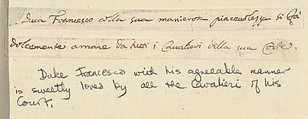 Duca Francesco colla sua manierosa piacevolezza si fà
dolcemente amare da tutti i Cavalieri della sua Corte.
Duke Francesco with his agreeable manner
is sweetly loved by all the Cavalieri of his
Court.